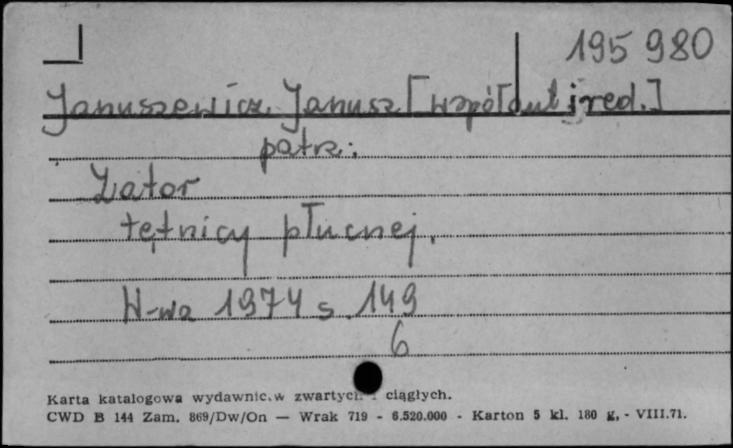 195 980
Januszewicz Janusz [współaut i red.]
patrz:
Zator
tętnicy płucnej.
W-wa 1974 s. 149
6
Karta katalogowa wydawnic.w zwartych i ciągłych.
CWD B 144 Zam. 869/Dw/On — Wrak 719 - 6.520.000 - Karton 5 kl. 180 g, - VIII.71.